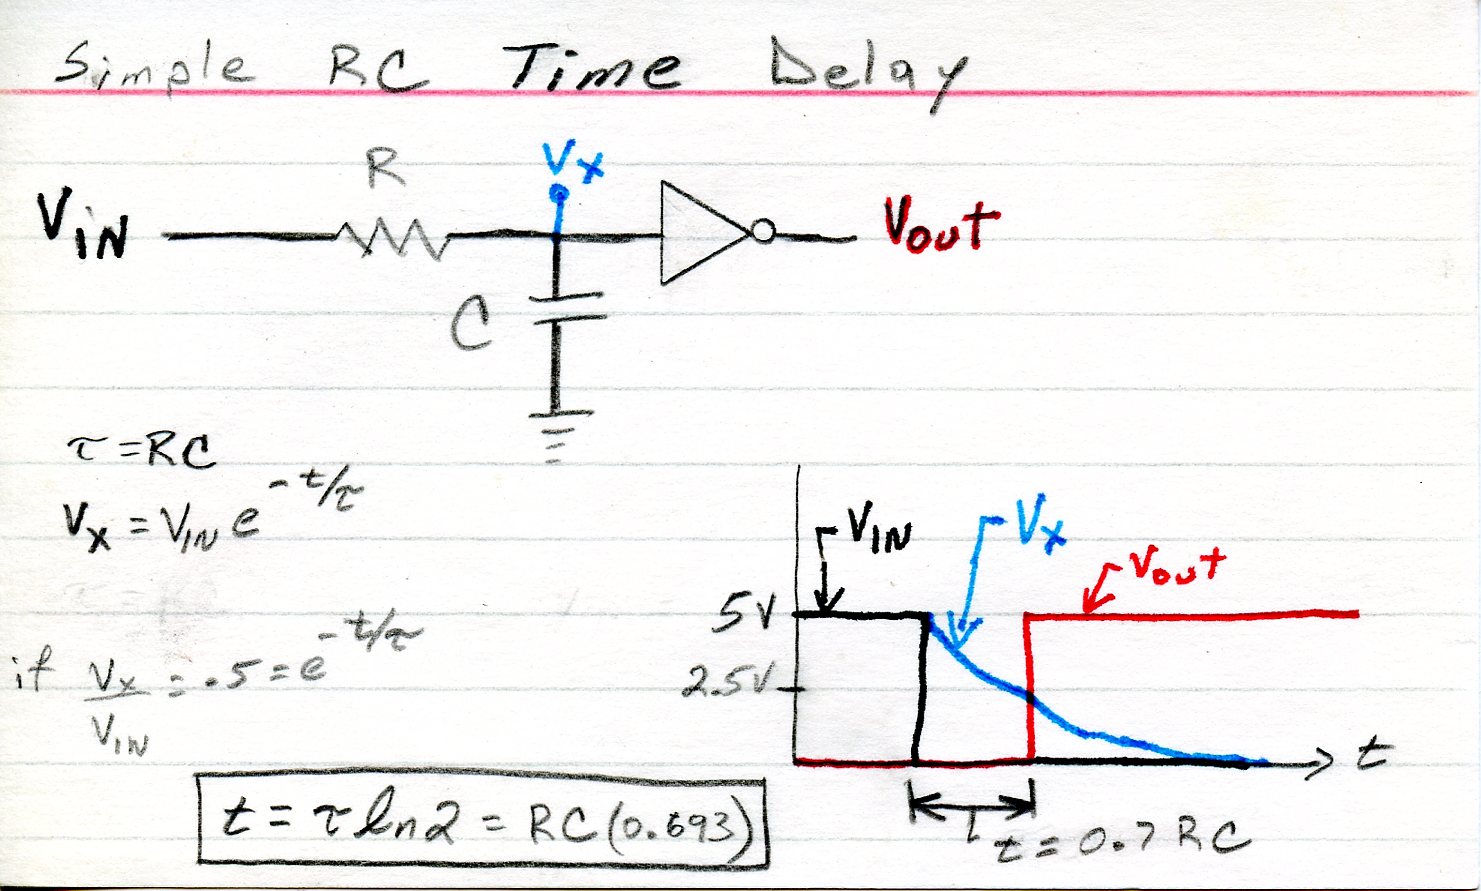 Simple RC Time Delay
R
Vx
VIN
Vout
C
τ=RC
Vx = VIN e^-t/τ
if Vx/VIN = .5 = e^-t/τ
t = τ ln2 = RC(0.693)
VIN
Vx
Vout
5V
2.5V
t
t = 0.7 RC